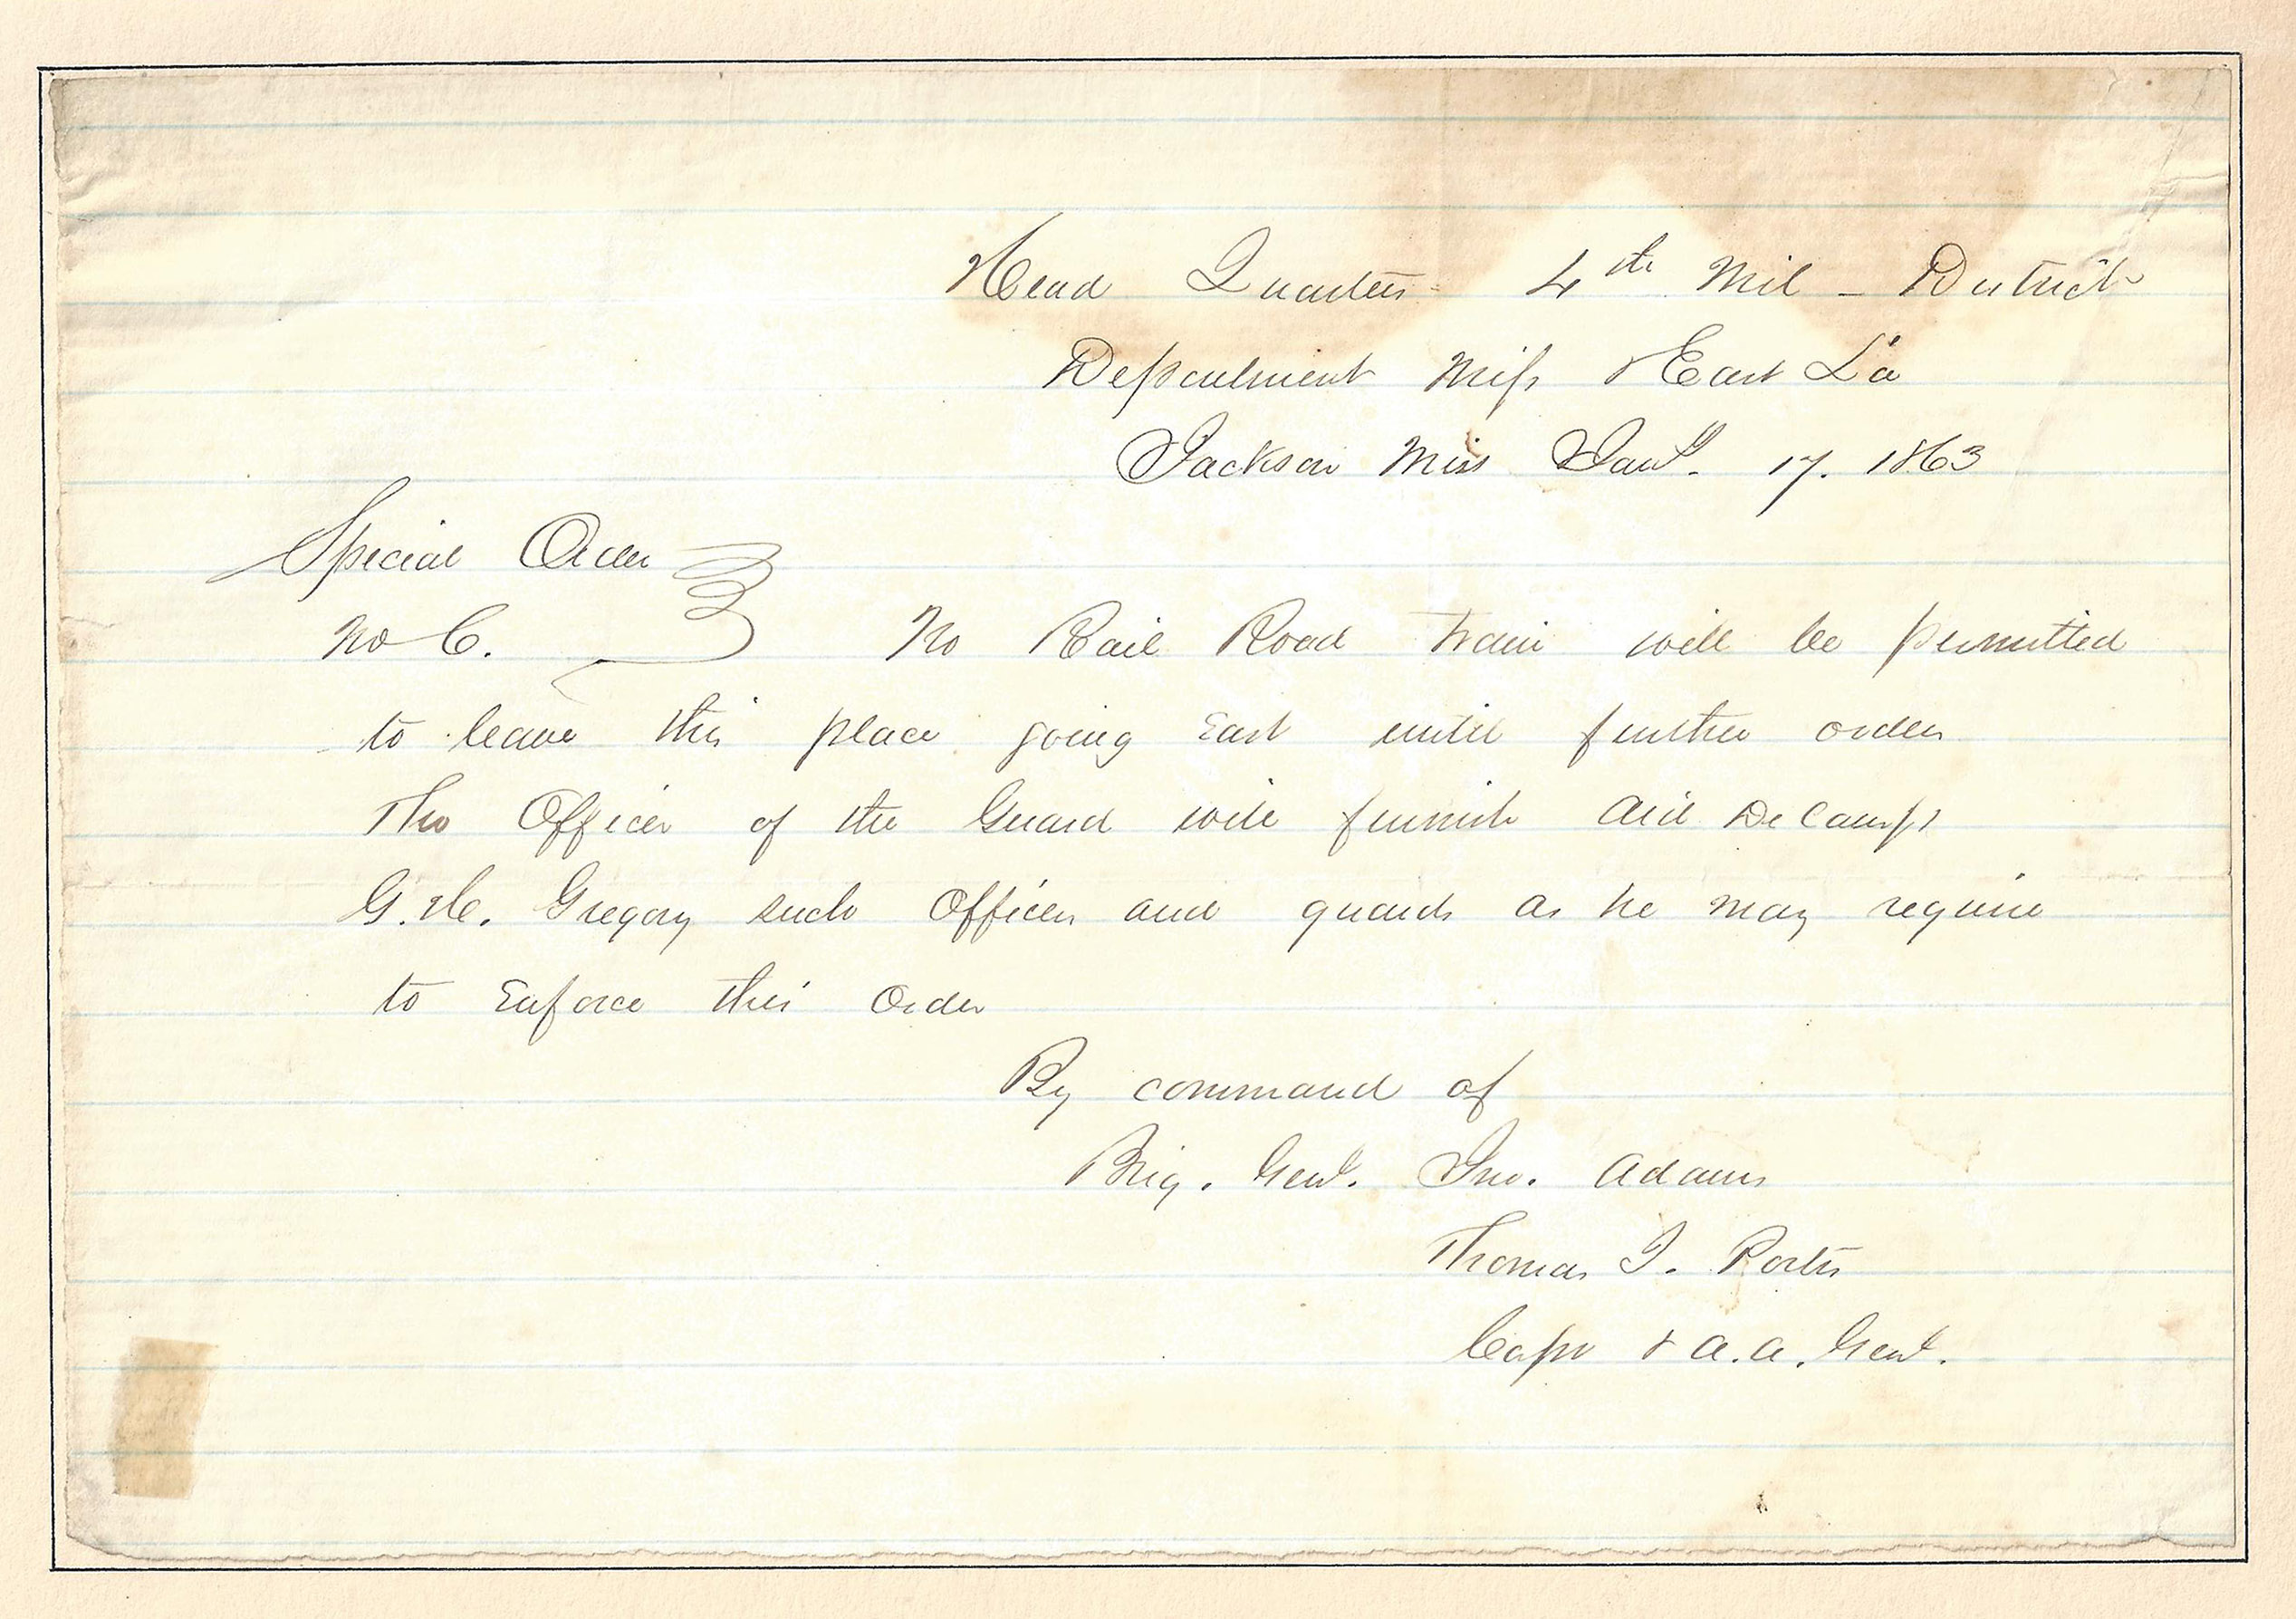 Head Quarters 4th Mil - District
Department Miss & East La
Jackson Miss Jany. 17. 1863
Special Order
No 6. No Rail Road train will be permitted
to leave this place going East until further orders
The Officer of the Guard will furnish Aid De Camp
G. H. Gregory such Officers and guards as he may require
to Enforce this Order
By command of
Brig. Genl. Jno. Adams
Thomas J. Porter
Capt & A.A. Genl.